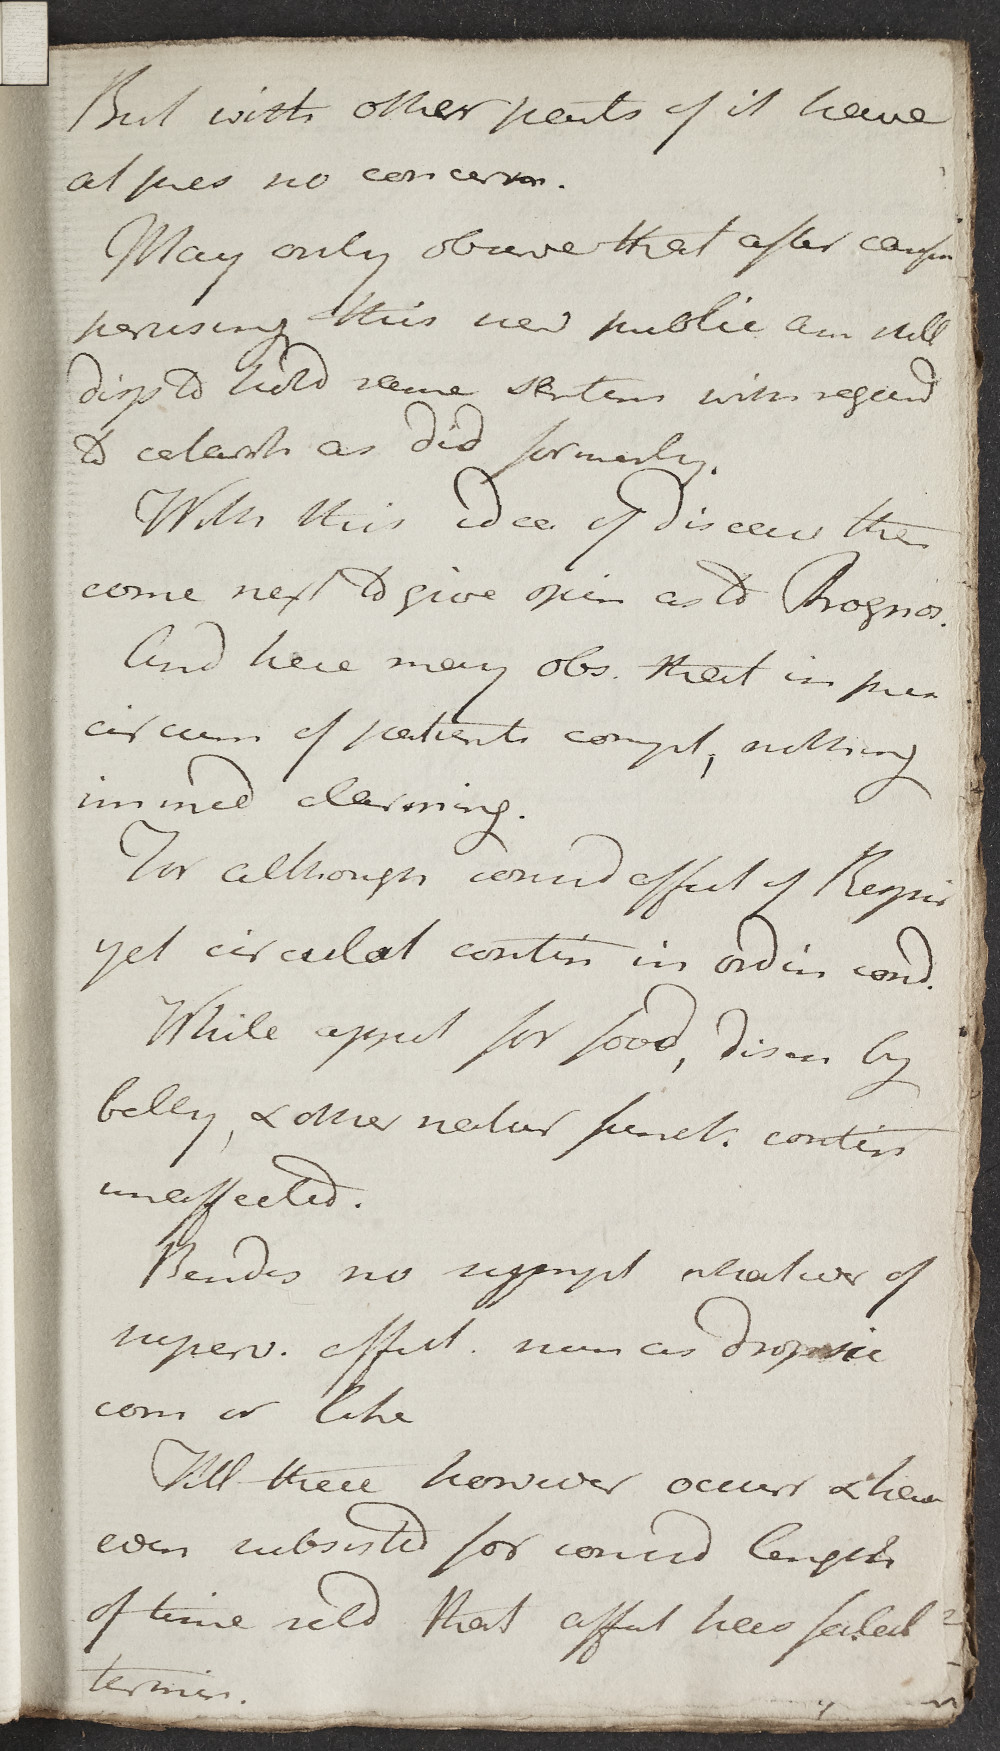 But with other parts of it have
at pres no concern.
May only observe that after
perusing this new public am still
disp to hold same sentim with regard
to catarrh as did formerly.
With this idea of disease then
come next to give opin as to Prognos.
And here may obs. that in pres
circum of patients compt, nothing
immed alarming.
For although consid affect of Respir
yet circulat contin in ordin cond.
While appet for food, disch by
belly, & other natur funct. contin
unaffected.
Besides no sympt whatever of
superv. affect. such as dropsie
com or like
Till these however occurr & have
even subsisted for consid length
of time seld that affect has fatal
termin.